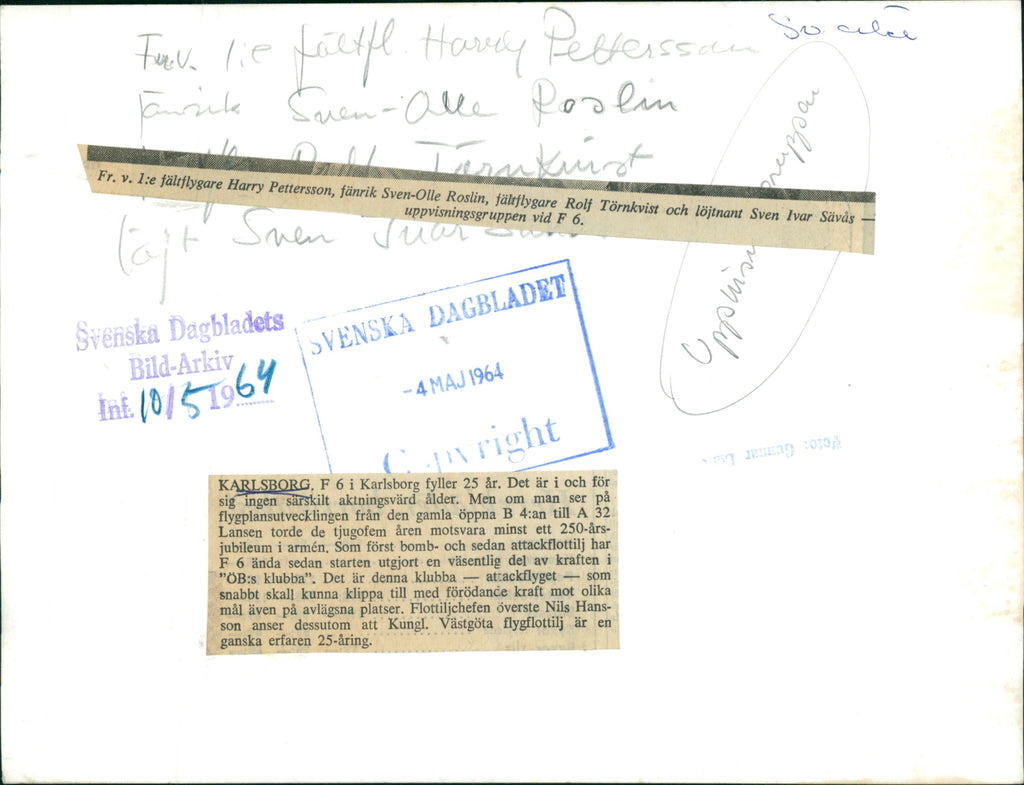 Fr.v. 1:e fältfl. Harry Pettersson
fänrik Sven-Olle Roslin
Törnkvist
löjt Sven Ivar
Fr. v. 1:e fältflygare Harry Pettersson, fänrik Sven-Olle Roslin, fältflygare Rolf Törnkvist och löjtnant Sven Ivar Sävås —
uppvisningsgruppen vid F 6.
Uppvisningsgruppen
Svenska Dagbladets
Bild-Arkiv
Inf. 10/5 1964
SVENSKA DAGBLADET
-4 MAJ 1964
Copyright
Foto: Gunnar
KARLSBORG. F 6 i Karlsborg fyller 25 år. Det är i och för
sig ingen särskilt aktningsvärd ålder. Men om man ser på
flygplansutvecklingen från den gamla öppna B 4:an till A 32
Lansen torde de tjugofem åren motsvara minst ett 250-års-
jubileum i armén. Som först bomb- och sedan attackflottilj har
F 6 ända sedan starten utgjort en väsentlig del av kraften i
"ÖB:s klubba". Det är denna klubba — attackflyget — som
snabbt skall kunna klippa till med förödande kraft mot olika
mål även på avlägsna platser. Flottiljchefen överste Nils Hans-
son anser dessutom att Kungl. Västgöta flygflottilj är en
ganska erfaren 25-åring.